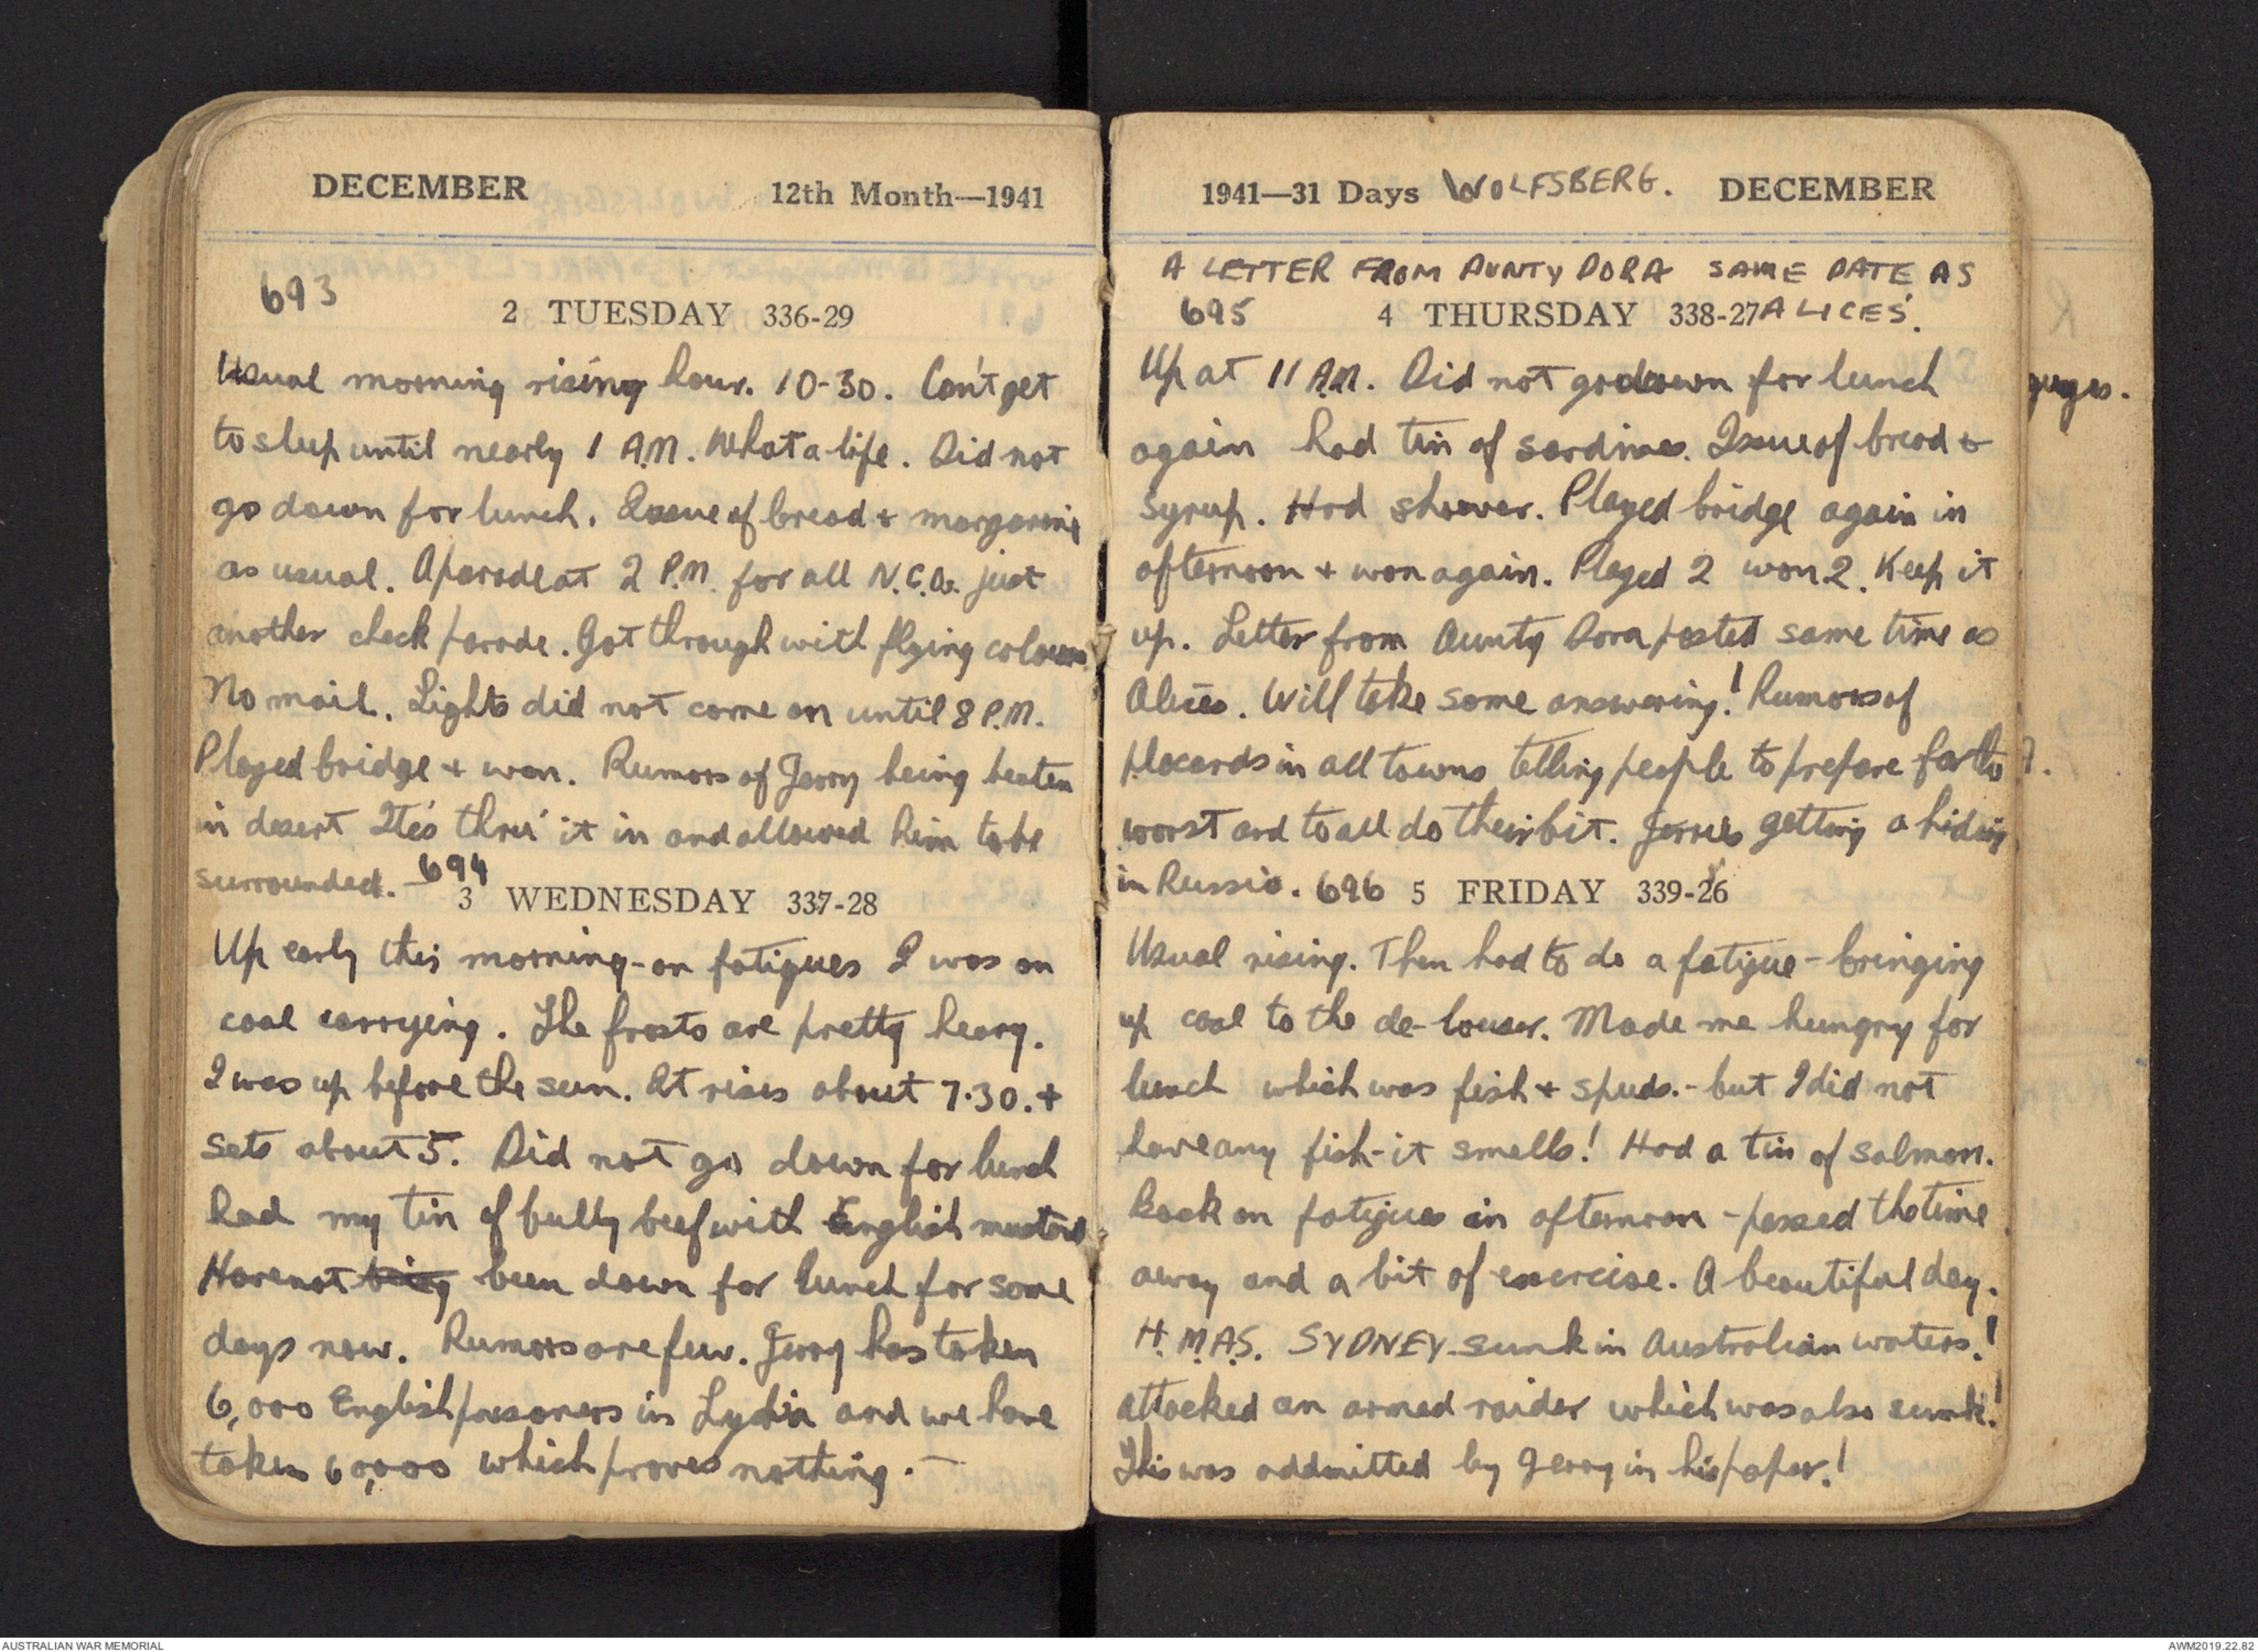 DECEMBER 12th Month—1941
693
2 TUESDAY 336-29
Usual morning rising hour. 10-30. Can't get
to sleep until nearly 1 A.M. What a life. Did not
go down for lunch. Issue of bread + margarine
as usual. A parade at 2 P.M. for all N.C.Os. just
another check parade. Got through with flying colours.
No mail. Lights did not come on until 8 P.M.
Played bridge + won. Rumors of Jerry being beaten
in desert Ities thru' it in and allowed him to be
surrounded. 694
3 WEDNESDAY 337-28
Up early this morning-on fatigues I was on
coal carrying. The frosts are pretty heavy.
I was up before the sun. It rises about 7.30. +
sets about 5. Did not go down for lunch
had my tin of bully beef with English mustard
Have not being been down for lunch for some
days now. Rumors are few. Jerry has taken
6,000 English prisoners in Lydia and we have
taken 60,000 which proves nothing. —
1941—31 Days WOLFSBERG. DECEMBER
A LETTER FROM AUNTY DORA SAME DATE AS
695 4 THURSDAY 338-27 ALICES'.
Up at 11 A.M. Did not go down for lunch
again had tin of sardines. Issue of bread +
syrup. Had shower. Played bridge again in
afternoon + won again. Played 2 won 2. Keep it
up. Letter from Aunty Dora posted same time as
Alices. Will take some answering! Rumors of
placards in all towns telling people to prepare for the
worst and to all do their bit. Jerries getting a hiding
in Russia. 696 5 FRIDAY 339-26
Usual rising. Then had to do a fatigue - bringing
up coal to the de-louser. Made me hungry for
lunch which was fish + spuds. - but I did not
have any fish - it smells! Had a tin of salmon.
Back on fatigues in afternoon - passed the time
away and a bit of exercise. A beautiful day.
H.M.A.S. SYDNEY sunk in Australian waters!
attacked an armed raider which was also sunk!
This was addmitted by Jerry in his paper!
AUSTRALIAN WAR MEMORIAL
AWM2019.22.82